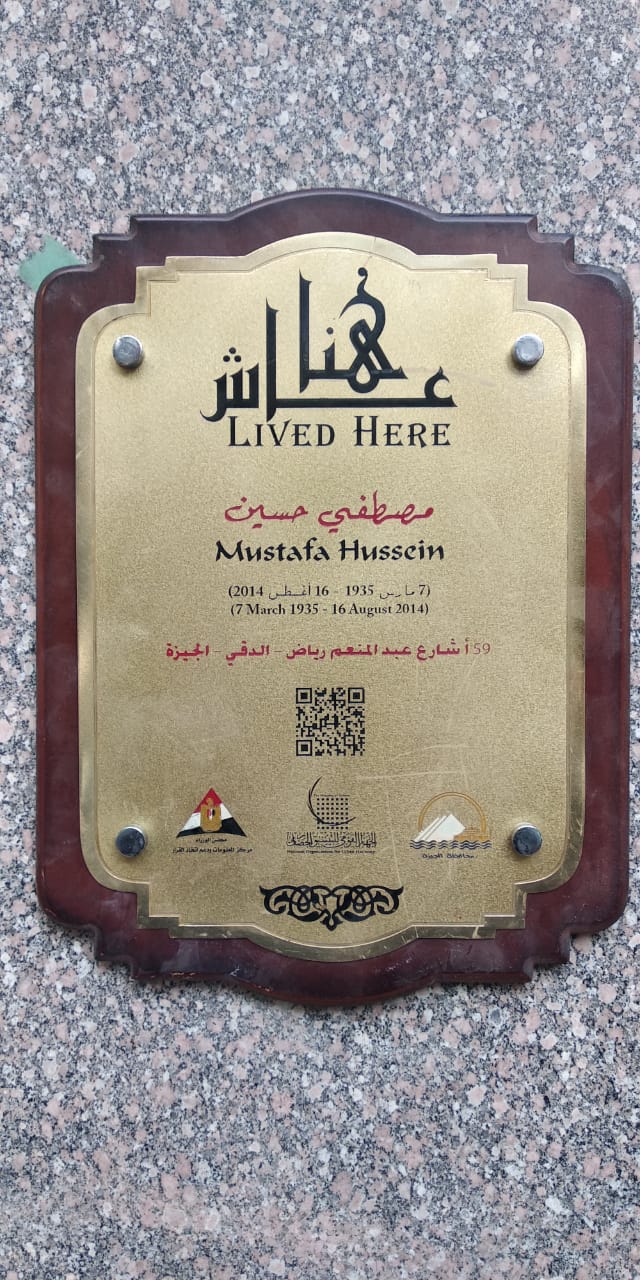 هنا
عاش
LIVED HERE
مصطفي حسين
Mustafa Hussein
(7 مارس 1935 - 16 أغسطس 2014)
(7 March 1935 - 16 August 2014)
59 أ شارع عبد المنعم رياض - الدقي - الجيزة
مجلس الوزراء
مركز المعلومات ودعم اتخاذ القرار
الجهاز القومي للتنسيق الحضاري
National Organization for Urban Harmony
محافظة الجيزة